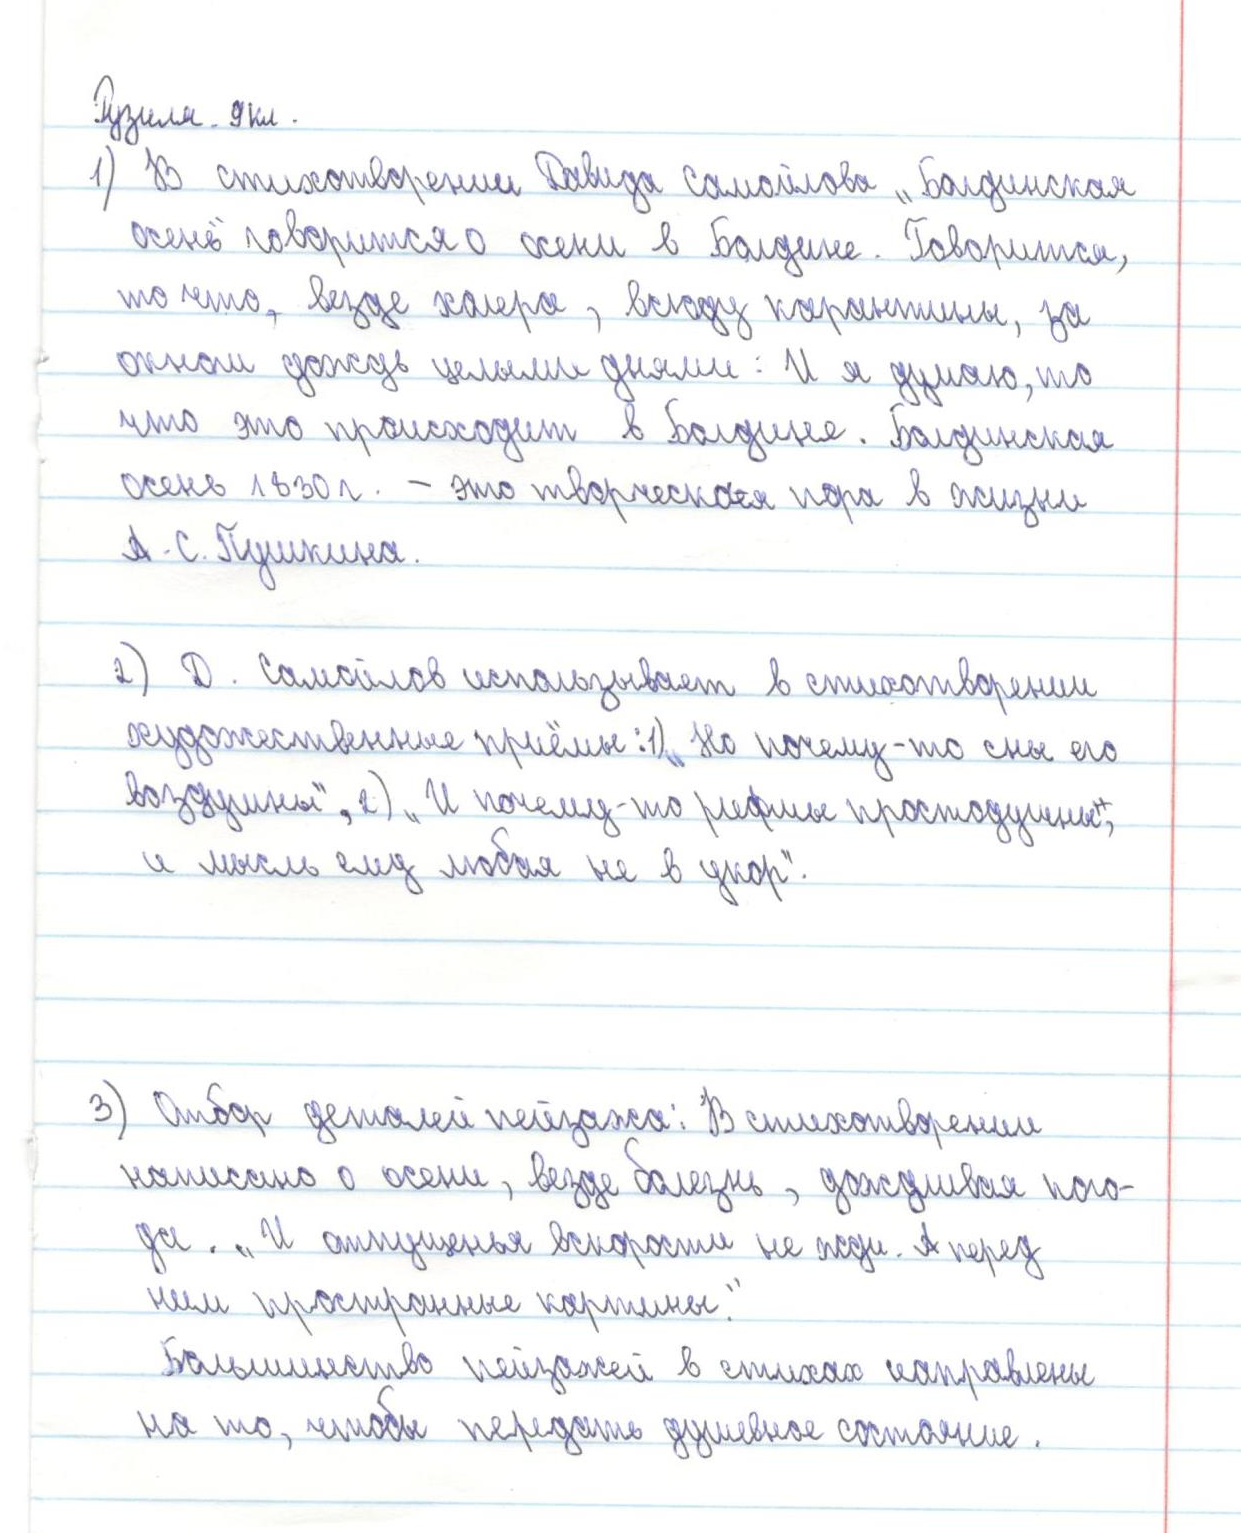 Рузиля. 9кл.
1) В стихотворении Давида Самойлова „Болдинская
осень" говорится о осени в Болдине. Говорится,
то что, везде холера, всюду карантины, за
окном дождь целыми днями: И я думаю, то
что это происходит в Болдине. Болдинская
осень 1830г. – это творческая пора в жизни
А.С. Пушкина.
2) Д. Самойлов использывает в стихотворении
художественные приёмы: 1) „Но почему-то сны его
воздушны", 2) „И почему-то рифмы простодушны",
и мысль ему любая не в укор".
3) Отбор деталей пейзажа: В стихотворении
написано о осени, везде болезнь, дождливая пого-
да. „И отпущенья вскорости не жди. А перед
ним пространные картины."
Большинство пейзажей в стихах направлены
на то, чтобы передать душевное состояние.